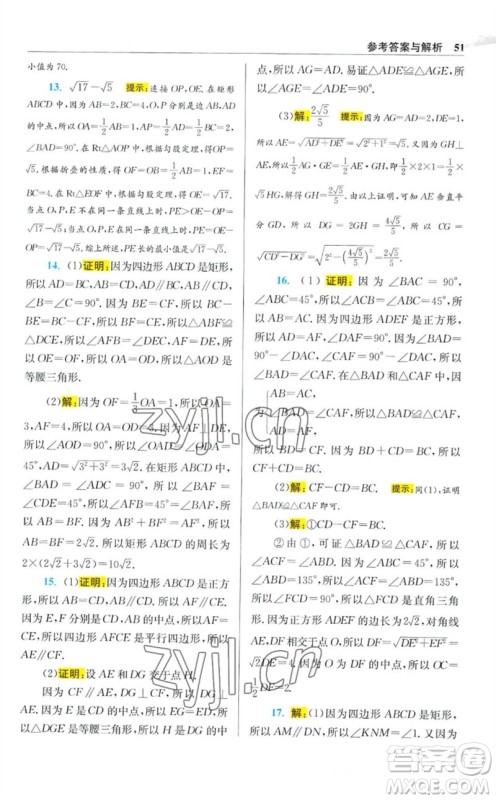 参考答案与解析 51
小值为70.
13. √17-√5 提示:连接OP,OE.在矩形
ABCD中,因为AB=4,BC=2,P,O分别为AB,AD
的中点,所以AO=1/2AD=1,AP=1/2AB=2,
∠BAD=90°.在Rt△AOP中,根据勾股定理,得
OP=√5.在Rt△EOF中,根据勾股定理,得OE=√17.
当O,P,E不在同一条直线上时,PE>OE-OP,所以
PE>√17-√5;当O,P,E在同一条直线上时,PE=
√17-√5.综上所述,PE的最小值为√17-√5.
14. (1)证明:因为四边形ABCD是矩形,
所以AD=BC,AB=CD,AD∥BC,所以∠BAD=
∠B=∠C=90°.因为BF=CD,所以AB=BF.
因为CF=BE,所以△ABE≌△FCD,所以AE=
DF.因为OE=OF,所以OA=OD,所以△AOD是
等腰三角形.
(2)解:因为OF=1/2OA=1,所以OA=OD=
3,AE=4,所以DF=4.因为AF⊥DE,所
以∠AOD=90°,所以∠OAD=∠ODA=
45°,AD=√3²+3²=3√2.因为AD∥BC,所
以∠AFB=∠OAD=45°.因为∠B=90°,所
以∠BAF=∠AFB=45°,所以AB=BF.因为AF=
4,所以AB=BF=2√2.所以矩形ABCD的周长为
2×(2√2+3√2)=10√2.
15. (1)证明:因为四边形ABCD是正方形,
所以AB=CD,AB∥CD,所以AF∥CE.因
为E,F分别是CD,AB的中点,所以AF=CE,所
以四边形AFCE是平行四边形,所以AE∥CF.
(2)证明:设AE和DG交于点H.
因为CF∥AE,所以∠DEA=∠DCF.因
为∠CGE=∠DCF,所以∠CGE=∠DCF,所
以△DGE是等腰三角形,所以H是DG的中
点,所以AG=AD.易证△ADE≌△AGE,所
以∠AGE=∠ADE=90°.
(3)解:2√5/5 提示:因为AG=AD=2,DE=1,所
以AE=√AD²+DE²=√2²+1²=√5.又因为GH⊥
AE,所以1/2AE·GH=1/2AG·GE,即1/2×2×1=1/2×
√5HG,所以HG=2√5/5.由以上证明,可得AE垂直平
分GD,所以DG=2GH=4√5/5,所以CG=
√CD²-DG²=√2²-(4√5/5)²=2√5/5.
16. (1)证明:因为∠BAC=90°,
∠ABC=45°,所以∠ACB=∠ABC=45°,所
以AB=AC.因为四边形ADEF是正方形,所
以AD=AF,∠DAF=90°.因为∠BAD=
90°-∠DAC,∠CAF=90°-∠DAC,所
以∠BAD=∠CAF,所以△BAD≌△CAF,所
以BD=CF.因为BD+CD=BC,所以CF+CD=
BC.
(2)解:CF-CD=BC. 提示:同(1),证明
△BAD≌△CAF即可.
(3)解:①CD-CF=BC.
②由①,可得△BAD≌△CAF,所以
∠ACF=∠ABD.因为∠ABC=45°,所
以∠ABD=135°,所以∠ACF=∠ABD=
135°,所以∠FCD=90°,所以△FCD是直角三角
形.因为正方形ADEF的边长为2√2且对角线
AE,DF相交于点O,所以DF=√DE²+EF²=
4,O为DF的中点,所以OC=
1/2DF=2.
17. 解:(1)因为四边形ABCD是矩形,所
以AM∥DN,所以∠KNM=∠1.又因为